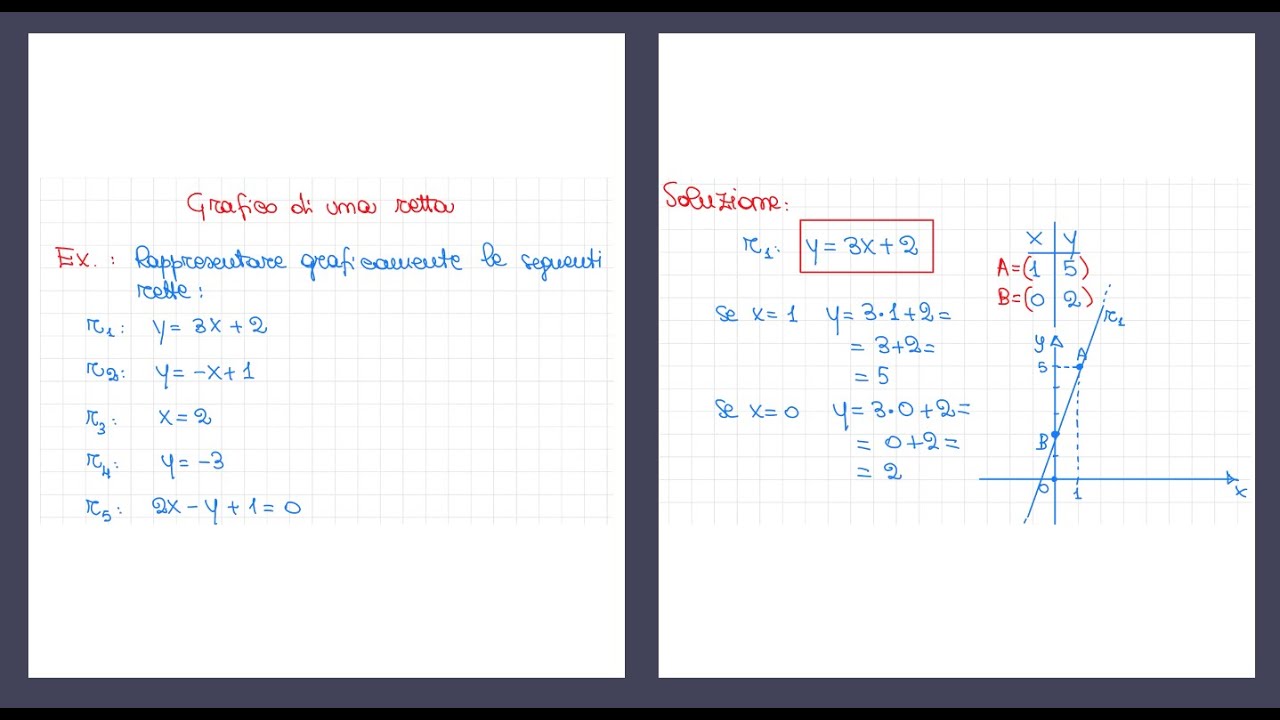 Grafico di una retta
Ex.: Rappresentare graficamente le seguenti
rette:
r₁: y = 3x + 2
r₂: y = -x + 1
r₃: x = 2
r₄: y = -3
r₅: 2x - y + 1 = 0
Soluzione:
r₁: y = 3x + 2
x y
A = (1 5)
B = (0 2)
Se x = 1 y = 3·1 + 2 =
= 3 + 2 =
= 5
Se x = 0 y = 3·0 + 2 =
= 0 + 2 =
= 2
r₁
y
A
5
B
0
1
x